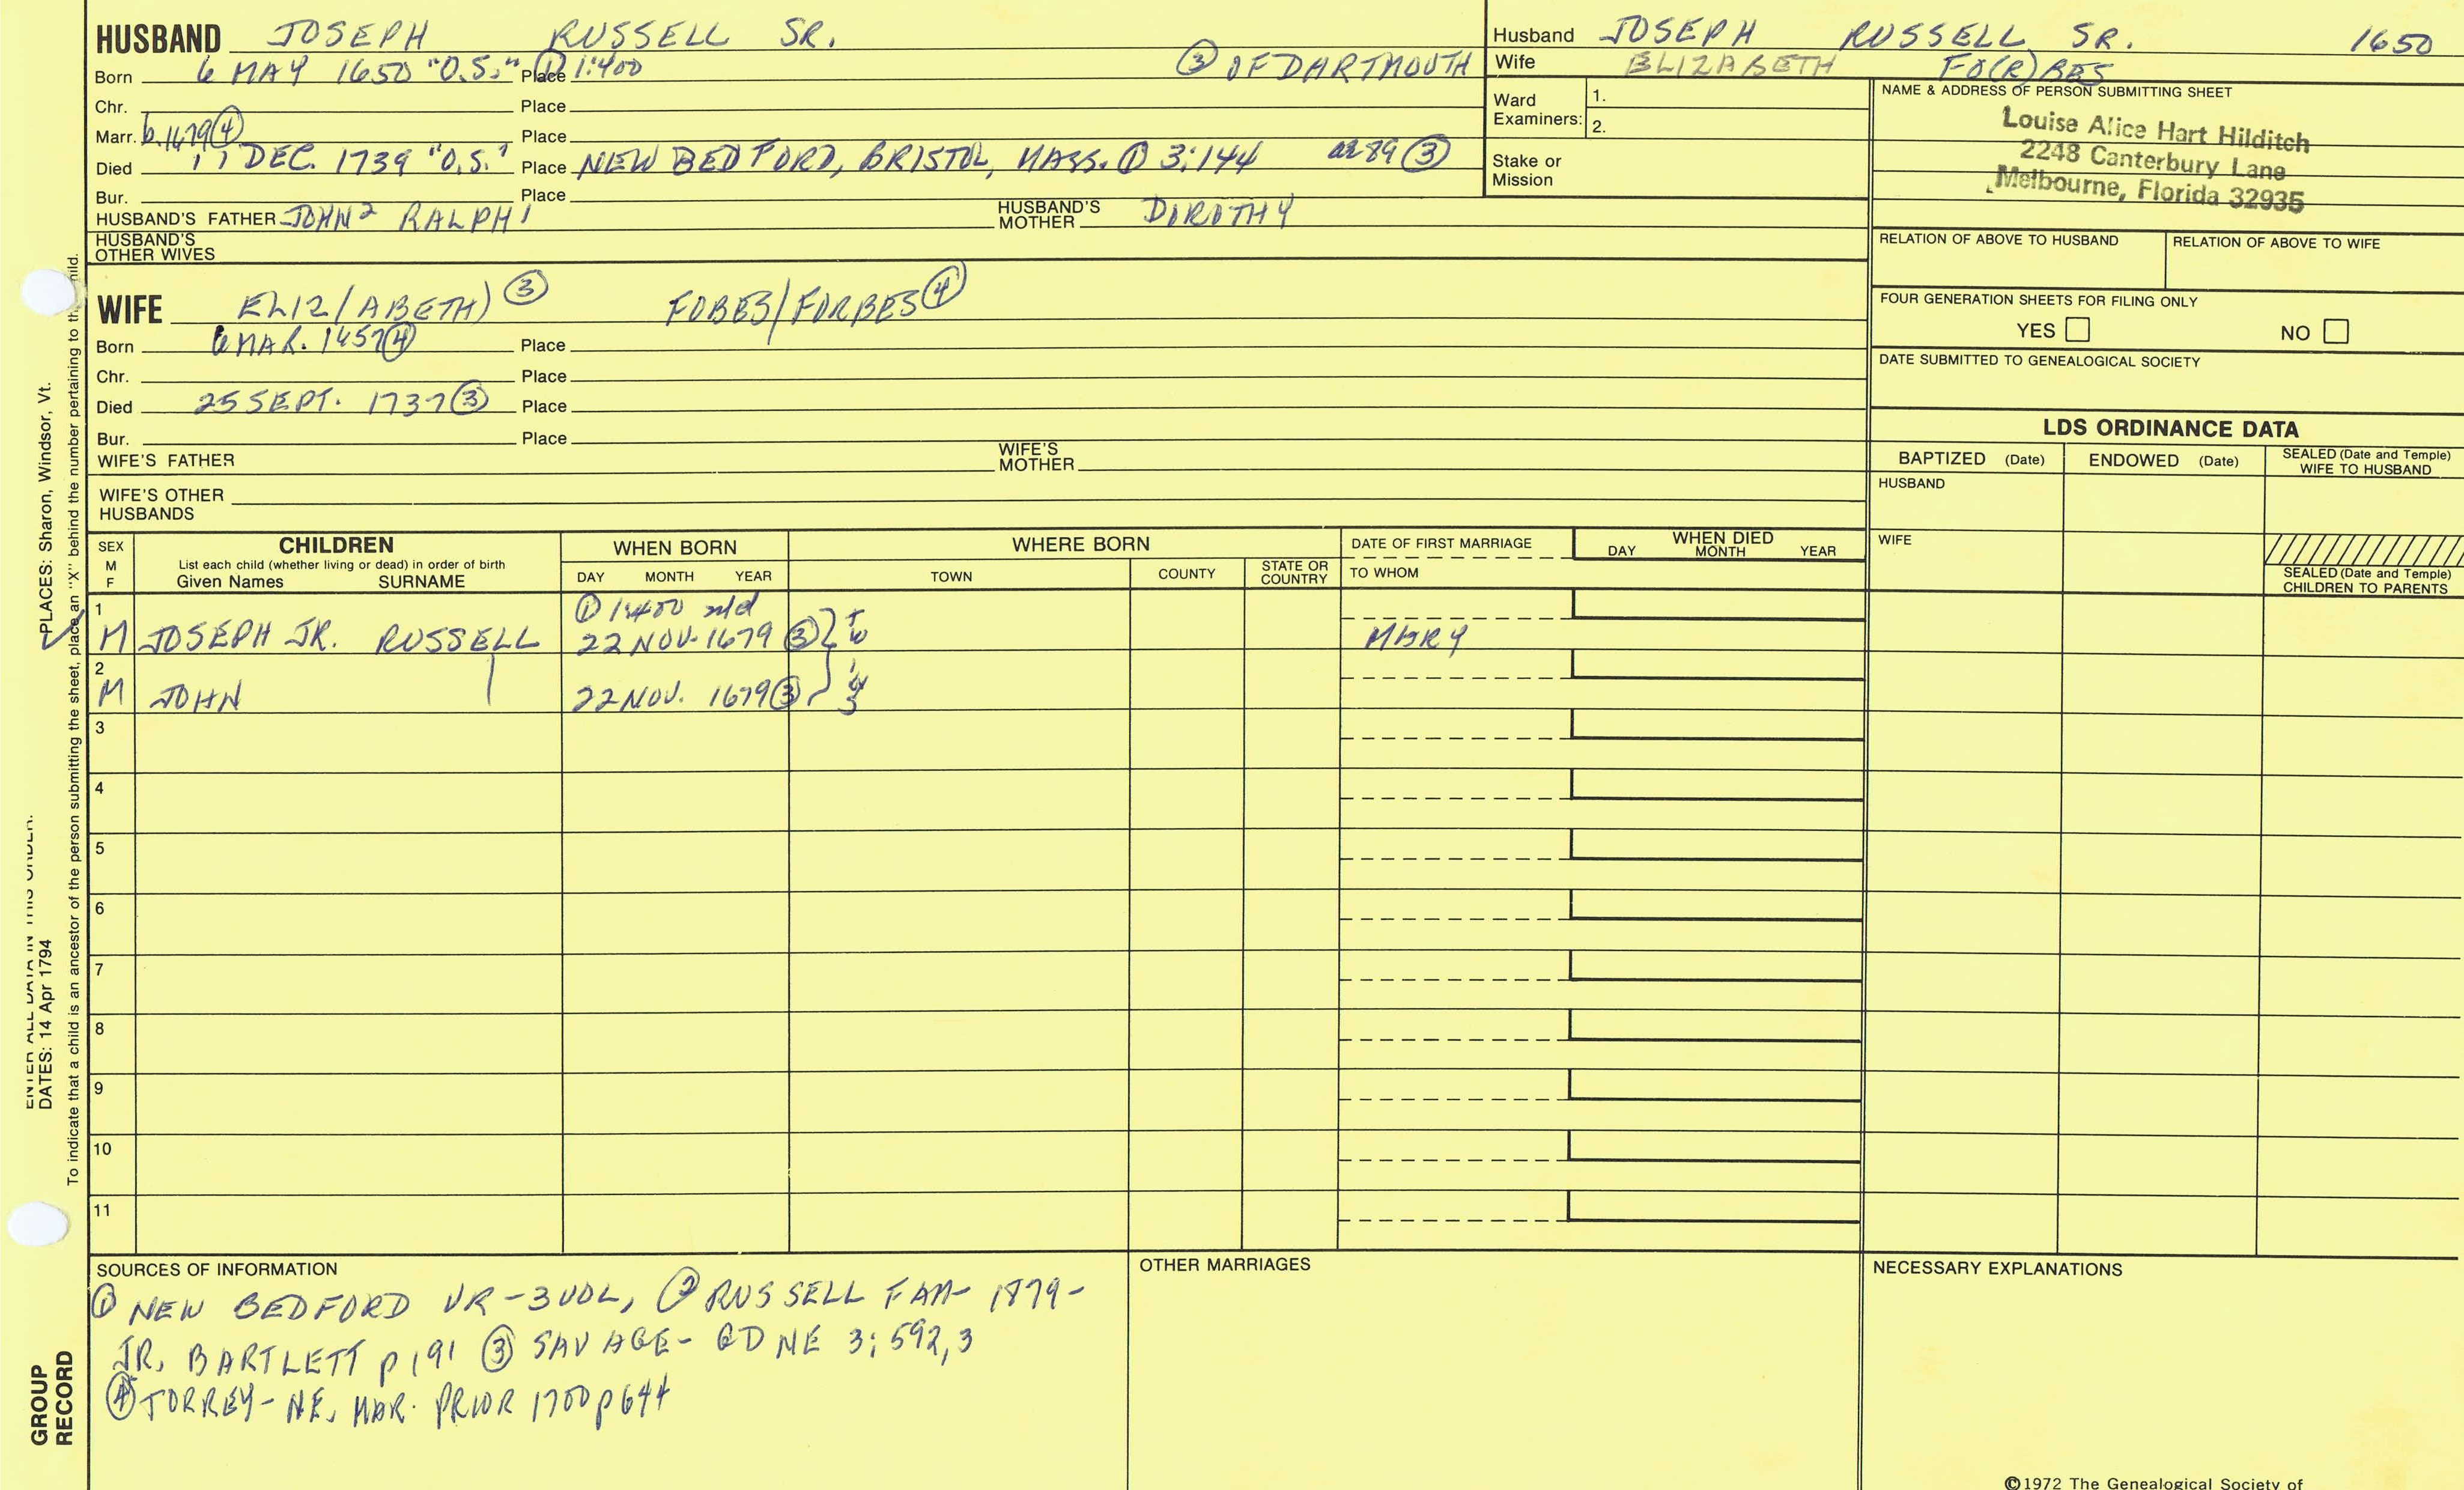 HUSBAND JOSEPH RUSSELL SR.
Born 6 MAY 1650 "O.S." Place ① 1:400 ③ OF DARTMOUTH
Chr. Place
Marr. b. 1679 ④ Place
Died 11 DEC. 1739 "O.S." Place NEW BEDFORD, BRISTOL, MASS. ① 3:144 ae 89 ③
Bur. Place
HUSBAND'S FATHER JOHN² RALPH¹ HUSBAND'S MOTHER DOROTHY
HUSBAND'S OTHER WIVES
Husband JOSEPH RUSSELL SR. 1650
Wife ELIZABETH FO(R)BES
Ward Examiners: 1.
2.
Stake or Mission
NAME & ADDRESS OF PERSON SUBMITTING SHEET
Louise Alice Hart Hilditch
2248 Canterbury Lane
Melbourne, Florida 32935
RELATION OF ABOVE TO HUSBAND RELATION OF ABOVE TO WIFE
FOUR GENERATION SHEETS FOR FILING ONLY
YES NO
DATE SUBMITTED TO GENEALOGICAL SOCIETY
WIFE ELIZ/ABETH) ③ FOBES/FORBES ④
Born 6 MAR. 1657 ④ Place
Chr. Place
Died 25 SEPT. 1737 ③ Place
Bur. Place
WIFE'S FATHER WIFE'S MOTHER
WIFE'S OTHER HUSBANDS
LDS ORDINANCE DATA
BAPTIZED (Date) ENDOWED (Date) SEALED (Date and Temple) WIFE TO HUSBAND
HUSBAND
WIFE
SEALED (Date and Temple) CHILDREN TO PARENTS
SEX M F
CHILDREN
List each child (whether living or dead) in order of birth
Given Names SURNAME
WHEN BORN
DAY MONTH YEAR
WHERE BORN
TOWN COUNTY STATE OR COUNTRY
DATE OF FIRST MARRIAGE
TO WHOM
WHEN DIED
DAY MONTH YEAR
1 ① 1:400 n/d
M JOSEPH JR. RUSSELL 22 NOV. 1679 ③ } MARY
2
M JOHN 22 NOV. 1679 ③ }
twins
3
4
5
6
7
8
9
10
11
SOURCES OF INFORMATION
① NEW BEDFORD VR-3VOL, ② RUSSELL FAM- 1879-
JR. BARTLETT p 191 ③ SAVAGE- GDNE 3:592,3
④ TORREY- NE. MAR. PRIOR 1700 p 644
OTHER MARRIAGES
NECESSARY EXPLANATIONS
©1972 The Genealogical Society of
ENTER ALL DATA IN THIS ORDER:
DATES: 14 Apr 1794
PLACES: Sharon, Windsor, Vt.
To indicate that a child is an ancestor of the person submitting the sheet, place an "X" behind the number pertaining to that child.
GROUP
RECORD